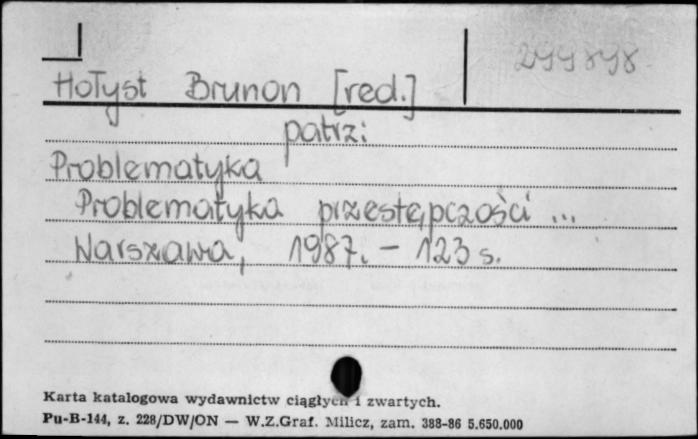 299898
Hołyst Brunon [red.]
patrz:
Problematyka
Problematyka przestępczości ...
Warszawa, 1987. - 123 s.
Karta katalogowa wydawnictw ciągłych i zwartych.
Pu-B-144, z. 228/DW/ON — W.Z.Graf. Milicz, zam. 388-86 5.650.000